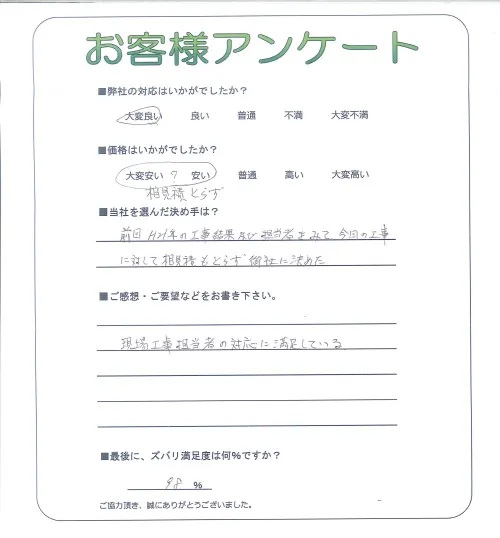 お客様アンケート
■弊社の対応はいかがでしたか？
大変良い 良い 普通 不満 大変不満
■価格はいかがでしたか？
大変安い ? 安い 普通 高い 大変高い
相見積とらず
■当社を選んだ決め手は？
前回H21年の工事結果及び担当者をみて今回の工事
に対して相見積もとらず御社に決めた
■ご感想・ご要望などをお書き下さい。
現場工事担当者の対応に満足している
■最後に、ズバリ満足度は何%ですか？
98 %
ご協力頂き、誠にありがとうございました。